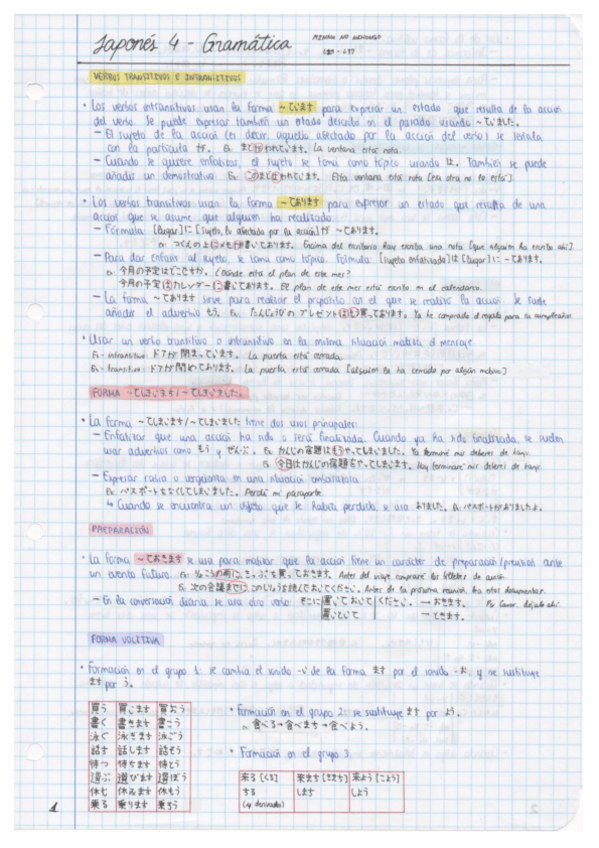 Japonés 4 - Gramática
MINNA NO NIHONGO
VERBOS TRANSITIVOS E INTRANSITIVOS
• Los verbos intransitivos usan la forma ~ています para expresar un estado que resulta de la acción
del verbo. Se puede expresar también un estado descrito en el pasado usando ~ていました.
- El sujeto de la acción (es decir, aquello afectado por la acción del verbo) se señala
con la partícula が. Ex. まどがわれています。 La ventana está rota.
- Cuando se quiere enfatizar, el sujeto se toma como tópico usando は. También se puede
añadir un demostrativo. Ex. このまどはわれています。 Esta ventana está rota [esa otra no lo está].
• Los verbos transitivos usan la forma ~てあります para expresar un estado que resulta de una
acción que se asume que alguien ha realizado.
- Fórmula: [lugar]に [sujeto, lo afectado por la acción]が ~てあります.
Ex. つくえの上にメモが書いてあります。 Encima del escritorio hay escrita una nota [que alguien ha escrito ahí].
- Para dar énfasis al sujeto, se toma como tópico. Fórmula: [sujeto enfatizado]は [lugar]に ~てあります.
Ex. 今月の予定はどこですか。 ¿Dónde está el plan de este mes?
今月の予定はカレンダーに書いてあります。 El plan de este mes está escrito en el calendario.
- La forma ~てあります sirve para realizar el propósito con el que se realizó la acción. Se suele
añadir el adverbio もう. Ex. たんじょうびのプレゼントはもう買ってあります。 Ya he comprado el regalo para su cumpleaños.
• Usar un verbo transitivo o intransitivo en la misma situación matiza el mensaje
Ex - intransitivo: ドアが閉まっています。 La puerta está cerrada.
Ex - transitivo: ドアが閉めてあります。 La puerta está cerrada [alguien la ha cerrado por algún motivo]
FORMA ~てしまいます/~てしまいました。
• La forma ~てしまいます/~てしまいました tiene dos usos principales:
- Enfatizar que una acción ha sido o será finalizada. Cuando ya ha sido finalizada, se suelen
usar adverbios como もう y ぜんぶ. Ex. かんじの宿題はもうやってしまいました。 Ya terminé mis deberes de kanji.
Ex. 今日はかんじの宿題をやってしまいます。 Hoy terminaré mis deberes de kanji.
- Expresar rabia o vergüenza en una situación embarazosa.
Ex. パスポートをなくしてしまいました。 Perdí mi pasaporte.
↳ Cuando se encuentra un objeto que se había perdido, se usa ありました. Ex. パスポートがありましたよ.
PREPARACIÓN
• La forma ~ておきます se usa para matizar que la acción tiene un carácter de preparación/previsión ante
un evento futuro. Ex. りょこうの前に きっぷを買っておきます。 Antes del viaje compraré los billetes de avión.
Ex. 次の会議までに このしりょうを読んでおいてください。 Antes de la próxima reunión, lea estos documentos.
- En la conversación diaria se usa otro verbo. そこに 置いておいてください. → おきます. Por favor, déjalo ahí.
置いといて → ときます.
FORMA VOLITIVA
• Formación en el grupo 1: se cambia el sonido -i de la forma ます por el sonido -o; y se sustituye
ます por う.
買う 買います 買おう
書く 書きます 書こう
泳ぐ 泳ぎます 泳ごう
話す 話します 話そう
待つ 待ちます 待とう
遊ぶ 遊びます 遊ぼう
休む 休みます 休もう
乗る 乗ります 乗ろう
• Formación en el grupo 2: se sustituye ます por よう.
Ex. 食べる→食べます→食べよう.
• Formación en el grupo 3.
来る [くる] 来ます [きます] 来よう [こよう]
する します しよう
(y derivados)
1